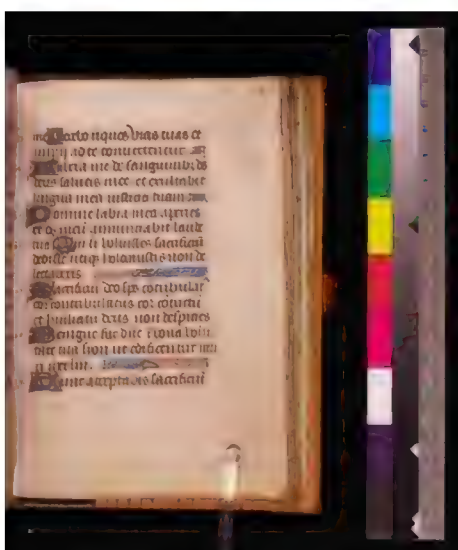 me Docebo iniquos vias tuas et
impii ad te convertentur
Libera me de sanguinibus ds
deus salutis mee et exultabit
lingua mea iustitiam tuam
Domine labia mea aperies
et os meum annuntiabit laude
tua Qm si voluisses sacrificiu
dedisse utiqs holocaustis non de
lectaberis
Sacrificiu deo sps contribulat
cor contribulatus cor contritu
et humiliatu deus non despicies
Benigne fac dne i bona volu
tate tua sion ut edificentur mu
ri irlm.
Tunc acceptabis sacrificiu